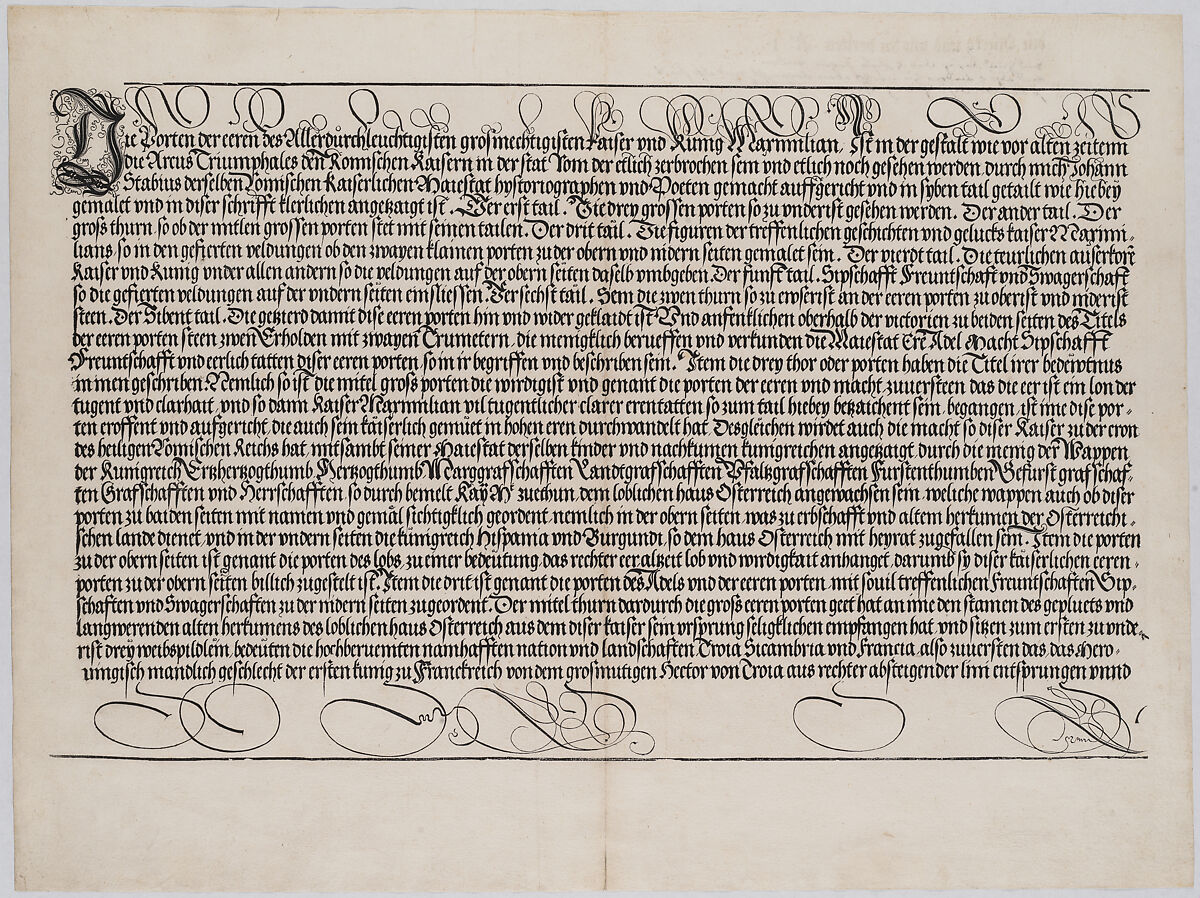 Die Porten der eeren des Allerdurchleuchtigisten grosmechtigisten Kaiser vnd Kunig Maximilian, Ist in der gestalt wie vor alten zeitenn
die Arcus Triumphales den Romischen Kaisern in der stat Rom der etlich zerbrochen sein vnd etlich noch gesehen werden, durch mich Johann
Stabius derselben Romischen Kaiserlichen Maiestat hystoriographen vnd Poeten gemacht auffgericht vnd in syben tail getailt wie hiebey
gemalet vnd in diser schrifft klerlichen angetzaigt ist. Der erst tail. Die drey grossen porten so zu vnderist gesehen werden. Der ander tail. Der
groß thurn, so ob der mitlen grossen porten stet mit seinen tailen. Der drit tail. Die figuren der treffenlichen geschichten vnd gelucks kaiser Maximi-
lians so in den gefierten veldungen ob den zwayen klainen porten zu der obern vnd nidern seiten gemalet sein. Der vierdt tail. Die teurlichen auserkorn
Kaiser vnd Kunig vnder allen andern so die veldungen auf der obern seiten daselb vmbgeben. Der funft tail. Sipschafft Freuntschaft vnd Swagerschaft
so die gefierten veldungen auf der vndern seiten einsliessen. Der sechst tail. Sein die zwen thurn so zu ewserist an der eeren porten zu oberist vnd niderist
steen. Der Sibent tail. Die getzierd damit dise eeren porten hin vnd wider geklaidt ist Vnd anfenklichen oberhalb der victorien zu beiden seiten des Titels
der eeren porten steen zwen Erholden mit zwayen Trumetern, die menigklich berueffen vnd verkunden die Maiestat Ere Adel Macht Sipschafft
Freuntschafft vnd eerlich tatten diser eeren porten, so in ir begriffen vnd beschriben sein. Item die drey thor oder porten haben die Titel irer bedewtnus
in inen geschriben. Nemlich so ist die mitel groß porten die wirdigist vnd genant die porten der eeren vnd macht, zuuersteen das die eer ist ein lon der
tugent vnd clarhait, vnd so dann Kaiser Maximilian vil tugentlicher clarer erentatten so zum tail hiebey betzaichent sein, begangen, ist ime dise por-
ten eroffent vnd aufgericht, die auch sein kaiserlich gemuet in hohen eren durchwandelt hat, Desgleichen wirdet auch die macht so diser Kaiser zu der cron
des heiligen Romischen Reichs hat, mitsambt seiner Maiestat derselben kinder vnd nachkumen kunigreichen angetzaigt, durch die menig der Wappen
der Kunigreich Ertzhertzogthumb Hertzogthumb Marggrafschafften Landtgrafschafften Pfaltzgrafschafften Furstenthumben Gefurst grafschaf-
ten Grafschafften vnd Herrschafften, so durch bemelt Kay Mt zuethun, dem loblichen haus Osterreich angewachsen sein, weliche wappen auch ob diser
porten zu baiden seiten mit namen vnd gemäl sichtigklich geordent, nemlich in der obern seiten, was zu erbschafft vnd altem herkumen der Osterreichi-
schen lande dienet, vnd in der vndern seiten die künigreich Hispania vnd Burgundi, so dem haus Osterreich mit heyrat zugefallen sein. Item die porten
zu der obern seiten ist genant die porten des lobs, zu einer bedeutung, das rechter eer altzeit lob vnd wirdigkait anhanget, darumb sy diser kaiserlichen eeren-
porten zu der obern seiten billich zugestelt ist. Item die drit ist genant die porten des Adels vnd der eeren porten, mit souil treffenlichen Freuntschaften Sip-
schaften vnd Swagerschaften zu der nidern seiten zugeordent. Der mitel thurn dardurch die groß eeren porten geet hat an ime den stamen des gepluets vnd
langwerenden alten herkumens des loblichen haus Osterreich aus dem diser kaiser sein vrsprung seligklichen empfangen hat, vnd sitzen zum ersten zu vnde-
rist drey weibspildlein, bedeuten die hochberuemten namhafften nation vnd landschaften, Troia Sicambria vnd Francia, also zuuersten das, das Mero-
uingisch mandlich geschlecht der ersten kunig zu Franckreich von dem grosmutigen Hector von Troia aus rechter absteigender lini entsprungen vnnd